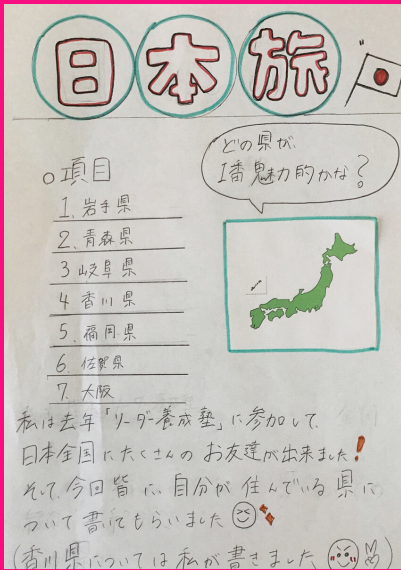 日本旅
どの県が、
1番魅力的かな?
○項目
1、岩手県
2、青森県
3 岐阜県
4 香川県
5、福岡県
6、佐賀県
7、大阪
私は去年「リーダー養成塾」に参加して、
日本全国にたくさんの お友達が出来ました!
そして、今回皆に、自分が住んでいる県に
ついて書いてもらいました
(香川県については私が書きました